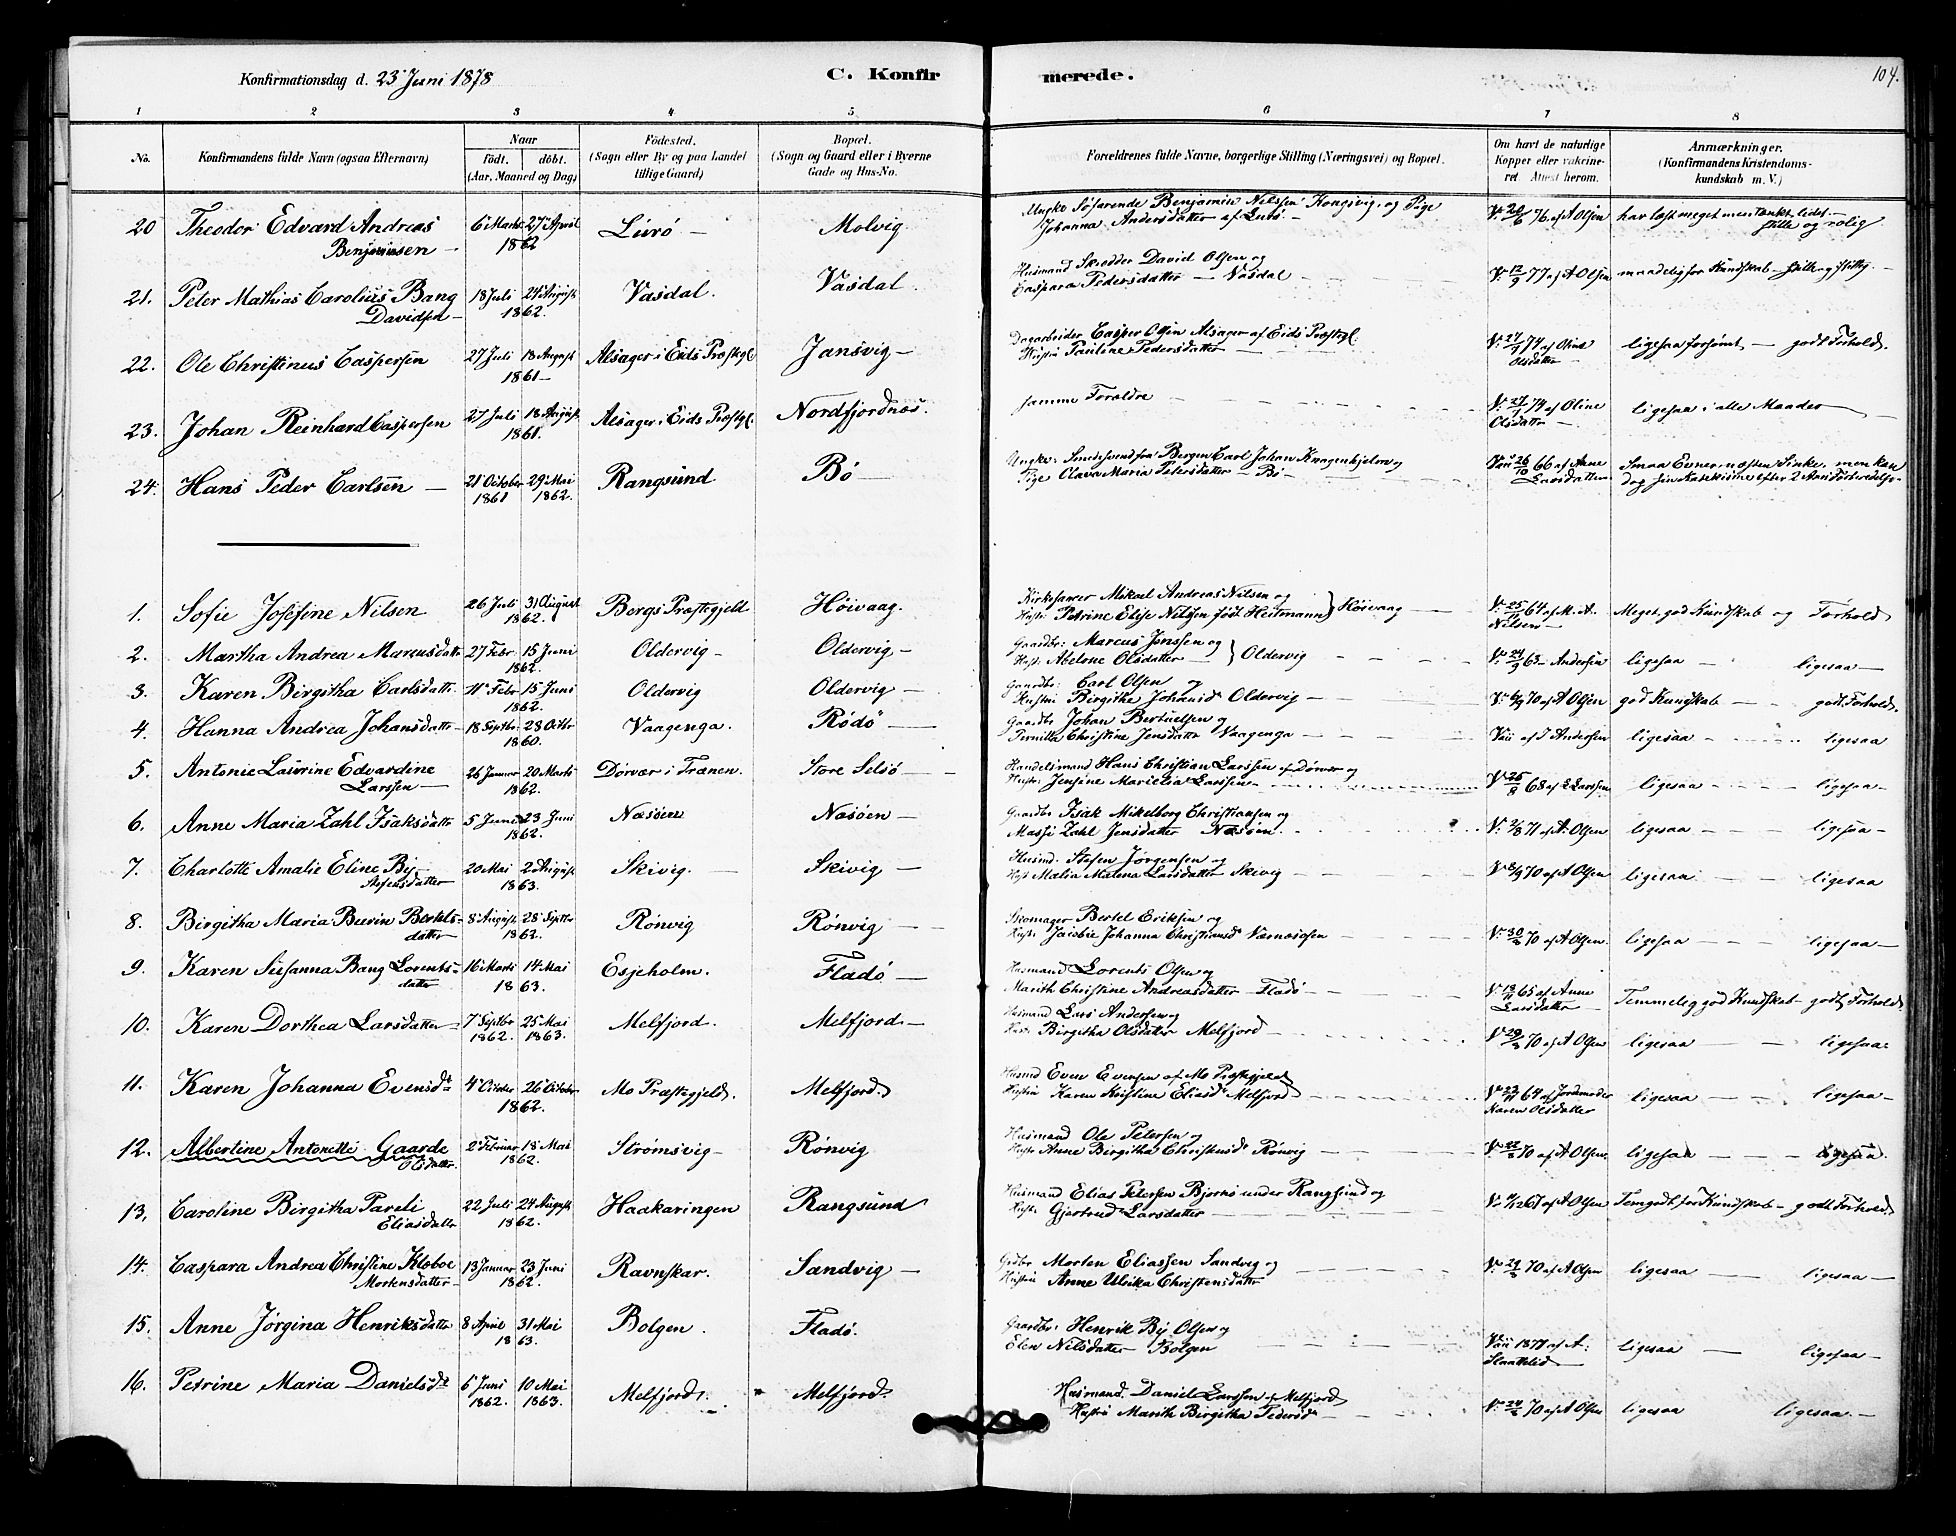 Konfirmationsdag d. 23 Juni 1878
C. Konfirmerede.
104.
1 2 3 4 5 6 7 8
No.
Konfirmandens fulde Navn (ogsaa Efternavn)
Naar
födt. döbt.
(Aar, Maaned og Dag)
Födested.
(Sogn eller By og paa Landet
tillige Gaard)
Bopæl.
(Sogn og Gaard eller i Byerne
Gade og Hus-No.
Forældrenes fulde Navne, borgerlige Stilling (Næringsvei) og Bopæl.
Om havt de naturlige
Kopper eller vakcine-
ret. Attest herom.
Anmærkninger.
(Konfirmandens Kristendoms-
kundskab m. V.)
20 Theodor Edvard Andreas 6 Marts 27 April Lurö — Molvig. Ungke Söfarende Benjamin Nilssen Kongsvig, og Pige V. 20/6 76 af A Olsen har læst meget men tænkt lidet —
Benjaminsen — 1862 Johanna Andersdatter af Lurö. — stille og rolig.
21. Peter Mathias Carolius Bang 18 Juli 24 August Vasdal. Vasdal. Husmand Skrædder David Olsen og V. 12/9 77 af A Olsen maadelig for Kundskab — stille og flittig —
Davidsen — 1862. Caspara Pedersdatter — Vasdal
22. Ole Christinus Caspersen 27 Juli 18 August Alsager i Eids Præstegl. Jansvig — Dagarbeider Casper Olsen Alsager af Eids Præstgl. V. 27/1 74 af Oline ligesaa forsömt — godt Forhold.
1861 — Hustru Pauline Pedersdatter — Olsdatter —
23. Johan Reinhard Caspersen 27 Juli 18 August Alsager i Eids Præstgl. Nordfjordnæs. samme Forældre V. 27/1 74 af Oline ligesaa i alle Maader
1861. Olsdatter —
24. Hans Peder Carlsen — 21 October 29 Mai Rangsund Bö — Ungk: Smedesvend fra Bergen Carl Johan Kragenhjelm og Vaci 26/10 66 af Anne Smaa Evner, næsten Sinke, men kan
1861 1862. Pige Olava Maria Petersdatter — Bö — Larsdatter dog sin Katekisme efter 2 Aars Forberedelse —
1. Sofie Josefine Nilsen 26 Juli 31 August Bergs Præstegjeld Höivaag. Kirkesanger Mikael Andreas Nilsen og V. 25/11 64 af M. A. Meget god Kundskab og Forhold
1862. Hustr: Petrine Elise Nilsen född Heitmann } Höivaag Nilsen —
2. Martha Andrea Marcusdatt 27 Febr 15 Juni Oldervig — Oldervig — Gaardbr: Marcus Jenssen og V. 24/9 63 — Andersen ligesaa — ligesaa —
1862. Hust: Abelone Olsdatter — } Oldervig
3. Karen Birgitha Carlsdatt. 11 Febr 15 Juni Oldervig Oldervig — Gaardbr: Carl Olsen og V. 6/9 70 af A Olsen god Kundskab — godt Forhold.
1862 Hustru Birgithe Johansd Oldervig —
4. Hanna Andrea Johansdatt 18 Septbr 28 Octbr Vaagenga. Rödö — Gaardbr Johan Bertuelsen og Vaci af J Andersen ligesaa — ligesaa
1860. Pernilla Christine Jensdatt Vaagenga
5. Antonie Laurine Edvardine 26 Januar 20 Marts Dörvær i Trænen. Store Selsö — Handelsmand Hans Christian Larssen af Dörvær og V. 25/8 68 af L Larssen ligesaa — ligesaa —
Larssen — 1862. Hustr: Jensine Marcelia Larssen —
6. Anne Maria Zahl Isaksdatt 5 Juni 23 Juni Næsöen Næsöen — Gaardbr Isak Mikelborg Christiansen og V. 2/8 71 af A. Olsen ligesaa — ligesaa —
1862. Massi Zahl Jensdatter Næsöen.
7. Charlotte Amalie Eline By 20 Mai 2 August Skivig. — Skivig — Husmd: Stefen Jörgensen og V. 8/9 70 af A Olsen ligesaa — ligesaa
Stefensdatter 1863. Hust Malia Malena Larsdatter Skivig —
8. Birgitha Maria Burin Bertels- 8 August 28 Septbr Rönvig Rönvig — Skomager Bertel Eriksen og V. 30/2 70 af A Olsen. ligesaa — ligesaa —
datter 1862. Hustr. Jacobie Johanna Christiansd Værnæsosen —
9. Karen Susanna Bang Lorents- 16 Marts 14 Mai Esjeholm. Fladö — Husmand Lorents Olsen og V. 13/11 65 af Anne Temmelig god Kundskab — godt Forhold.
datter 1863. Marith Christine Andreasdatter — Fladö — Larsdatter —
10. Karen Dorthea Larsdatter — 7 Septbr 25 Mai Melfjord. Melfjord — Husmand Lars Andersen og V. 29/2 70 af A Olsen ligesaa — ligesaa.
1862. 1863. Hust: Birgitha Olsdatter Melfjord —
11. Karen Johanna Evensdt 4 October 26 October Mo Præstegjeld. Melfjord. Husmd Even Evensen af Mo Præstegjeld V. 23/11 64 af Jordemoder ligesaa — ligesaa —
1862. Hustru Karen Kristine Eliasd Melfjord Karen Olsdatter
12. Albertine Antonette Gaarde 2 Februar 18 Mai Strömsvig — Rönvig Husmand Ole Petersen og V. 22/8 70 af A Olsen ligesaa — ligesaa.
Olsdatter. 1862. Hustr Anne Birgitha Christensd Rönvig —
13. Caroline Birgitha Pareli 22 Juli 24 August Haakaringen Rangsund Husmand Elias Petersen Bjornö under Rangsund og V. 9/12 67 af A Olsen Temgodt for Kundskab — godt Forhold.
Eliasdatt 1862. Hustr: Gjertrud Larsdatter —
14. Caspara Andrea Christine Kleboe 13 Januar 23 Juni Ravnskar. Sandvig — Gdbr Morten Eliassen Sandvig og V. 29/2 70 af A Olsen ligesaa — ligesaa —
Mortensdatter — 1862. Hustru Anne Ulrika Christensdatter
15. Anne Jörgina Henriksdatt 8 April 31 Mai Bolgen. Fladö. Gaardbr: Henrik By Olsen og Vaci 1877 af A: ligesaa — ligesaa —
1863. Elen Nilsdatter — Bolgen Slaattelid
16. Petrine Maria Danielsdt 6 Juni 10 Mai Melfjord. Melfjord. Husmand Daniel Larssen af Melfjord V. 29/2 70 af A Olsen ligesaa ligesaa —
1862. 1863. Hustru Marith Birgitha Pedersd